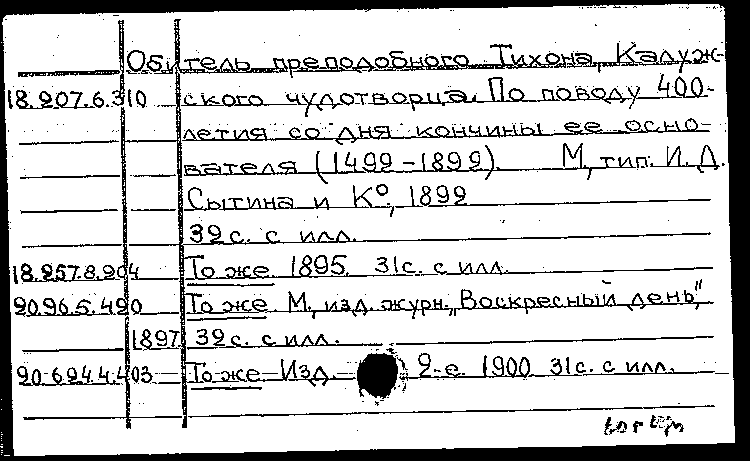 Обитель преподобного Тихона, Калуж-
18.207.6.310 ского чудотворца. По поводу 400-
летия со дня кончины ее осно-
вателя (1492-1892). М, тип. И. Д.
Сытина и К°, 1892
32 с. с илл.
18.257.8.204 То же 1895. 31 с. с илл.
20.96.5.420 То же М., изд. журн. „Воскресный день",
1897 32 с. с илл.
20.694.4.403 То же Изд. 2-е. 1900 31 с. с илл.